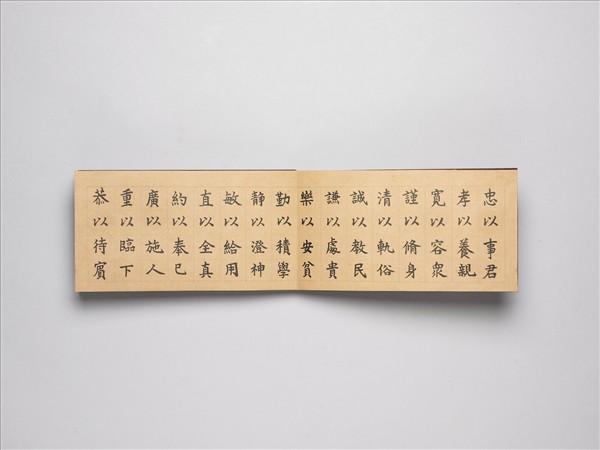 忠以事君
孝以養親
寬以容衆
謹以脩身
清以軌俗
誠以教民
謙以處貴
樂以安貧
勤以積學
靜以澄神
敏以給用
直以全真
約以奉己
廣以施人
重以臨下
恭以待賓